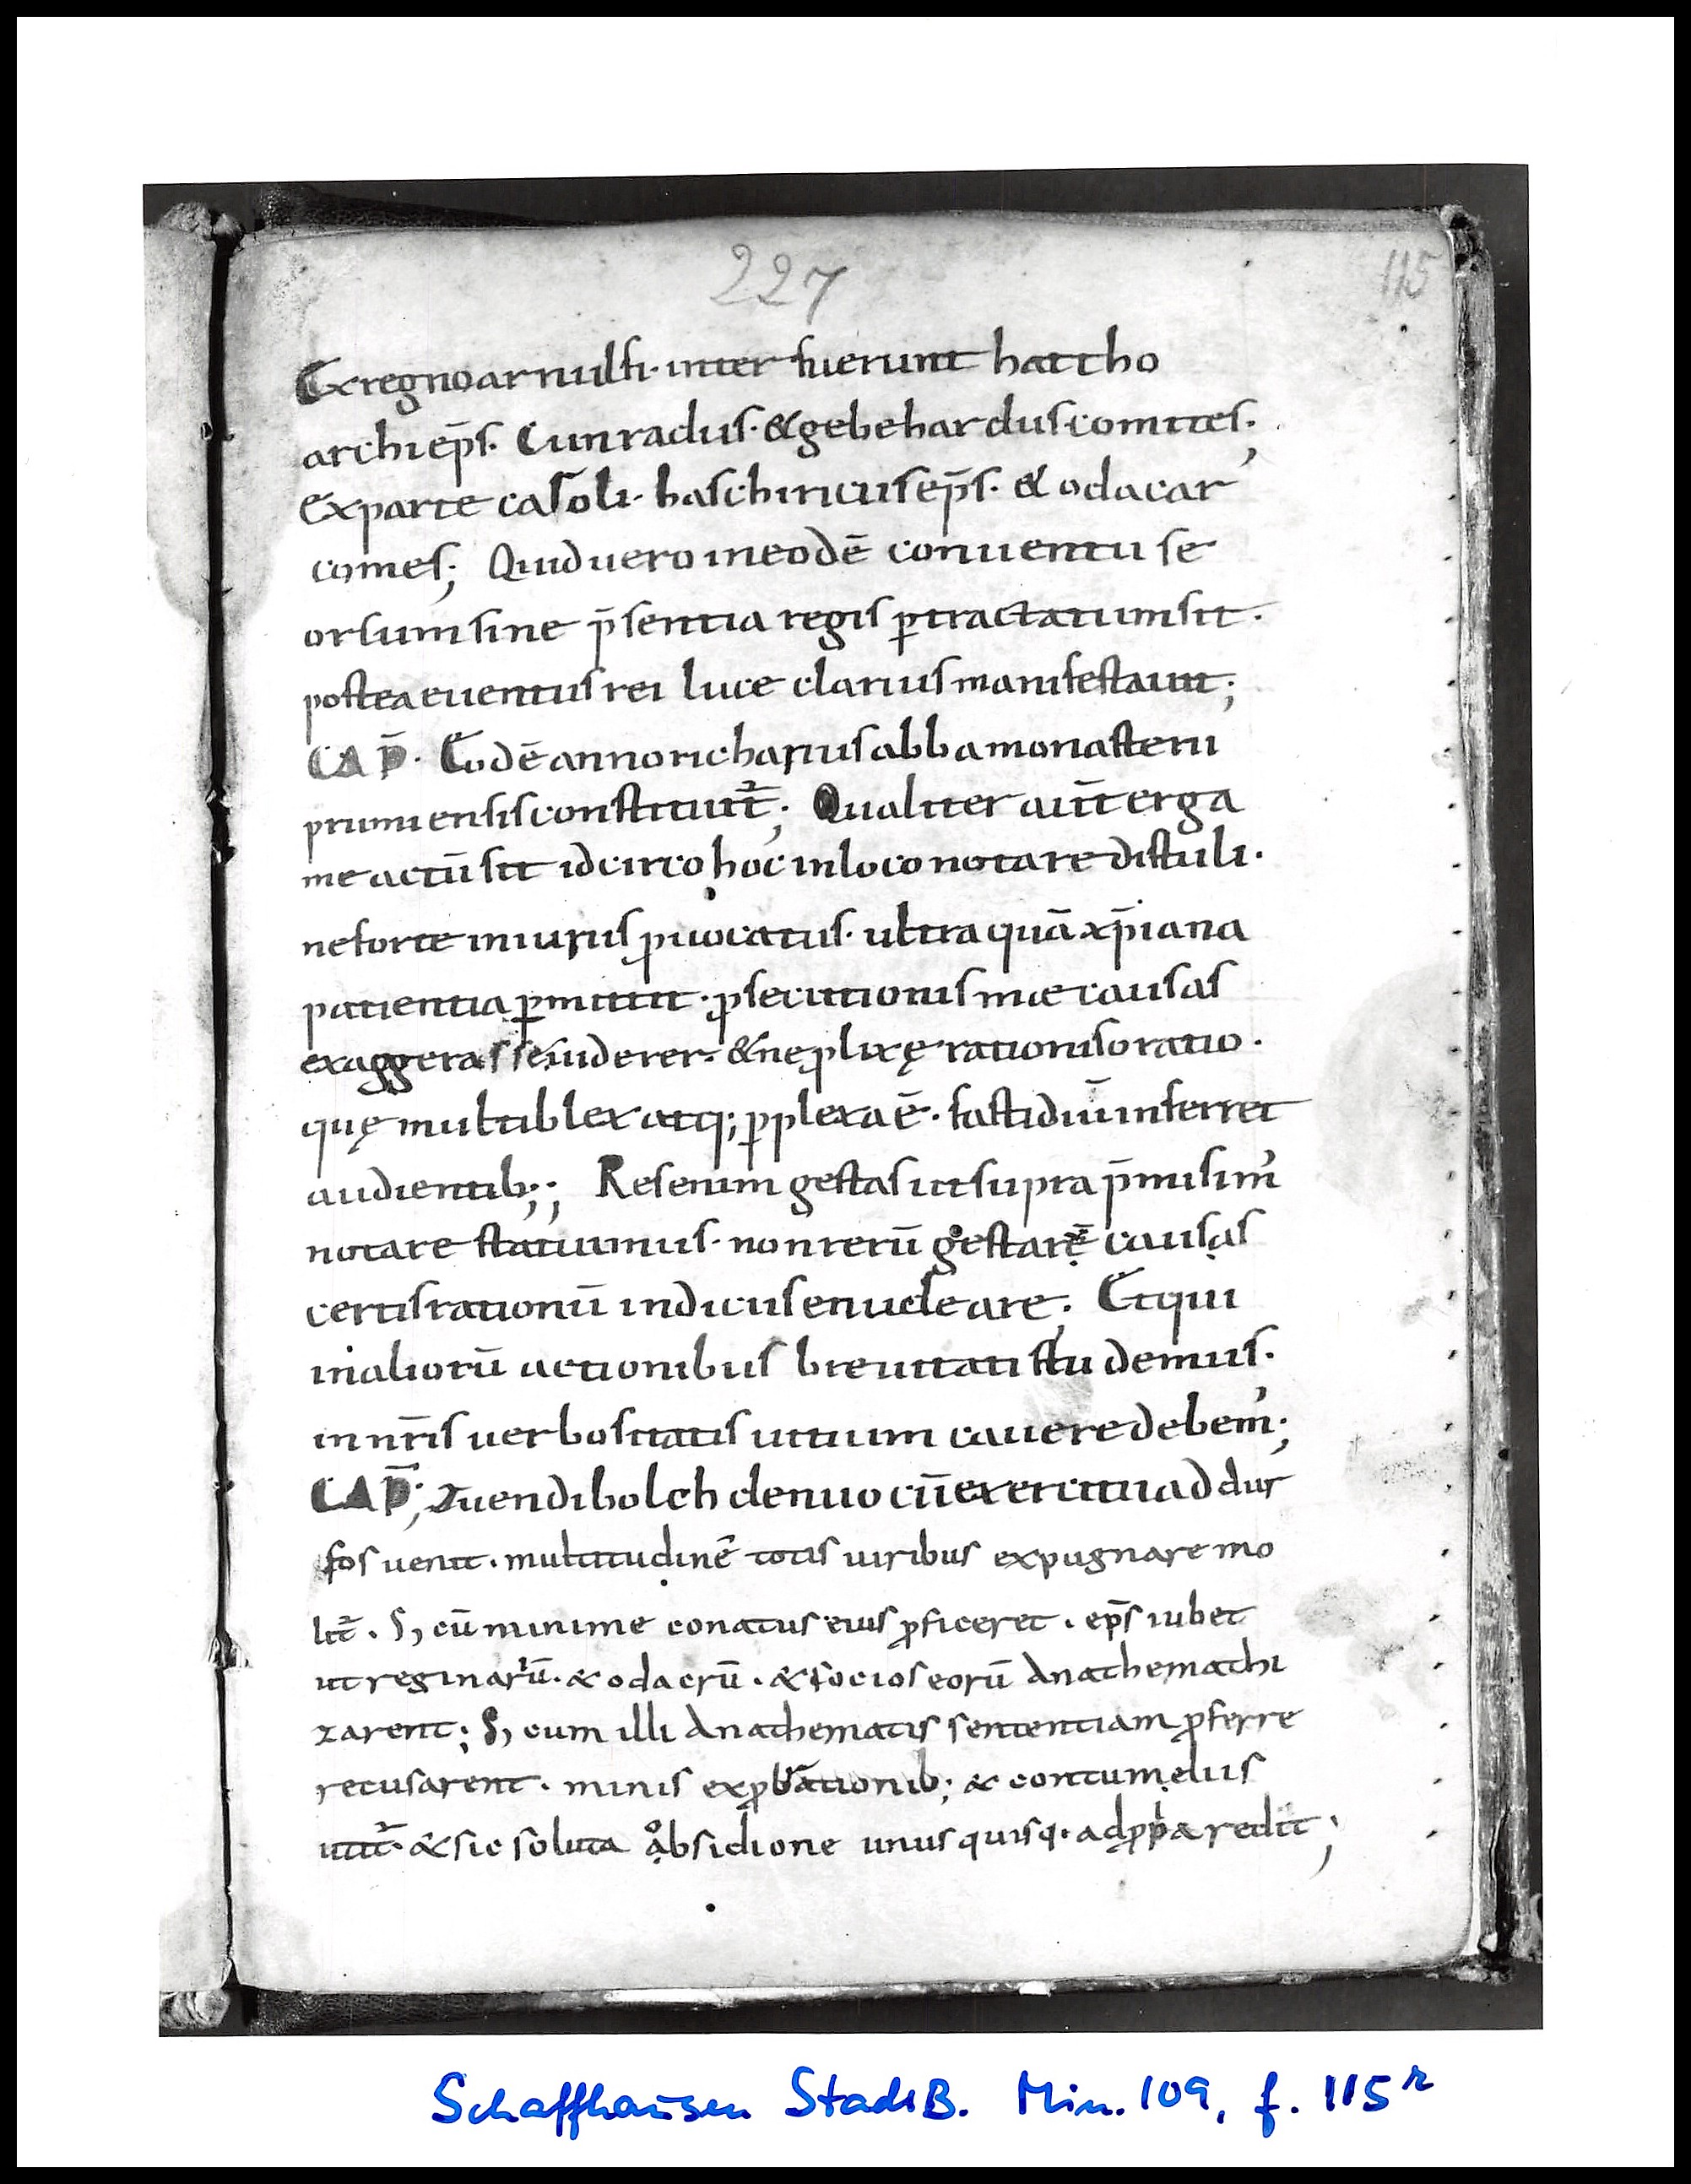 227
115
Exregnoarnulfi· inter fuerunt hattho
archiep̄s. Cunradus·&gebehardus·comites;
Exparte casoli· baschiricusep̄s· & odacar
comes; Quiduero ineodē conuentu se
orsumsine p̄sentia regis ꝑtractatumsit·
posteaeuentusrei luce clariusmanifestauit;
CAP̄· Eodēannoricharius abbamonasterii
prumiensisconstituit̄; Qualiter aut̄erga
me actūsit idcirco hoc inloco notare distuli·
neforte iniuriis ꝓuocatus· ultra quā xp̄iana
patientia ꝑmittit· ꝑsecutionis mae causas
exaggerasse uiderer· &neꝓlixę rationisoratio·
quę multiblex atq; ꝑplexa ē· fastidiū inferret
audientib;; Resenim gestas utsupra p̄misim᾽
notare statuimus· nonrerū gestarē causas
certisrationū indiciisenucleare; Etqui
inaliorū actionibus breuitati studemus·
innr̄is uerbositatis uitium cauere debem᾽;
CAP̄; Zuendibolch denuo cū exercituad dur
fos uenit· multitudinē totis uiribus expugnare mo
lit̄· S, cū minime conatus eius ꝓficeret· ep̄s iubet
ut reginarīū·& odacrū·& socios eorū anathemathi
zarent; S, cum illi anathematis sententiam ꝓferre
recusarent· minis exꝓbrationib; & contumeliis
utit̄·&sic soluta obsidione unus quisq· adꝓpa redit;
Schaffhausen StadtB. Min. 109, f. 115r